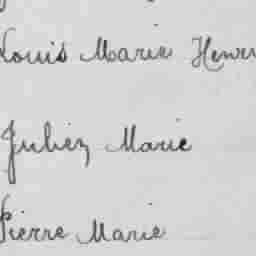 Louis Marie Henri
Julien Marie
Pierre Marie